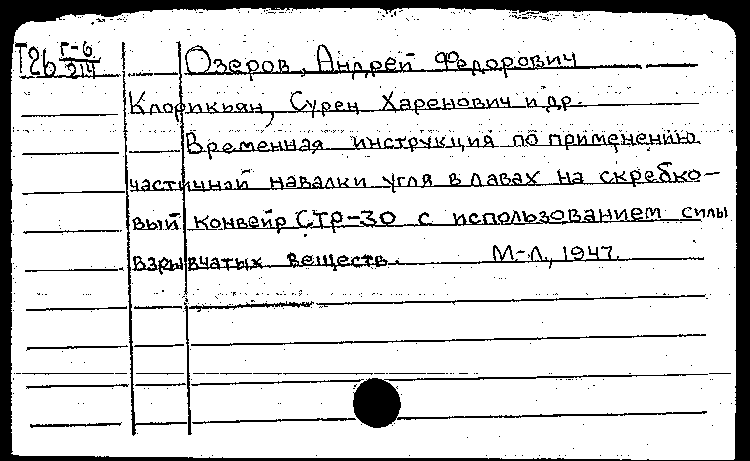 Т26 Г-6/214 Озеров, Андрей Федорович
Клорикьян, Сурен Харенович и др.
Временная инструкция по применению
частичной навалки угля в лавах на скребко-
вый конвейр СТР-30 с использованием силы
взрывчатых веществ. М-Л., 1947.